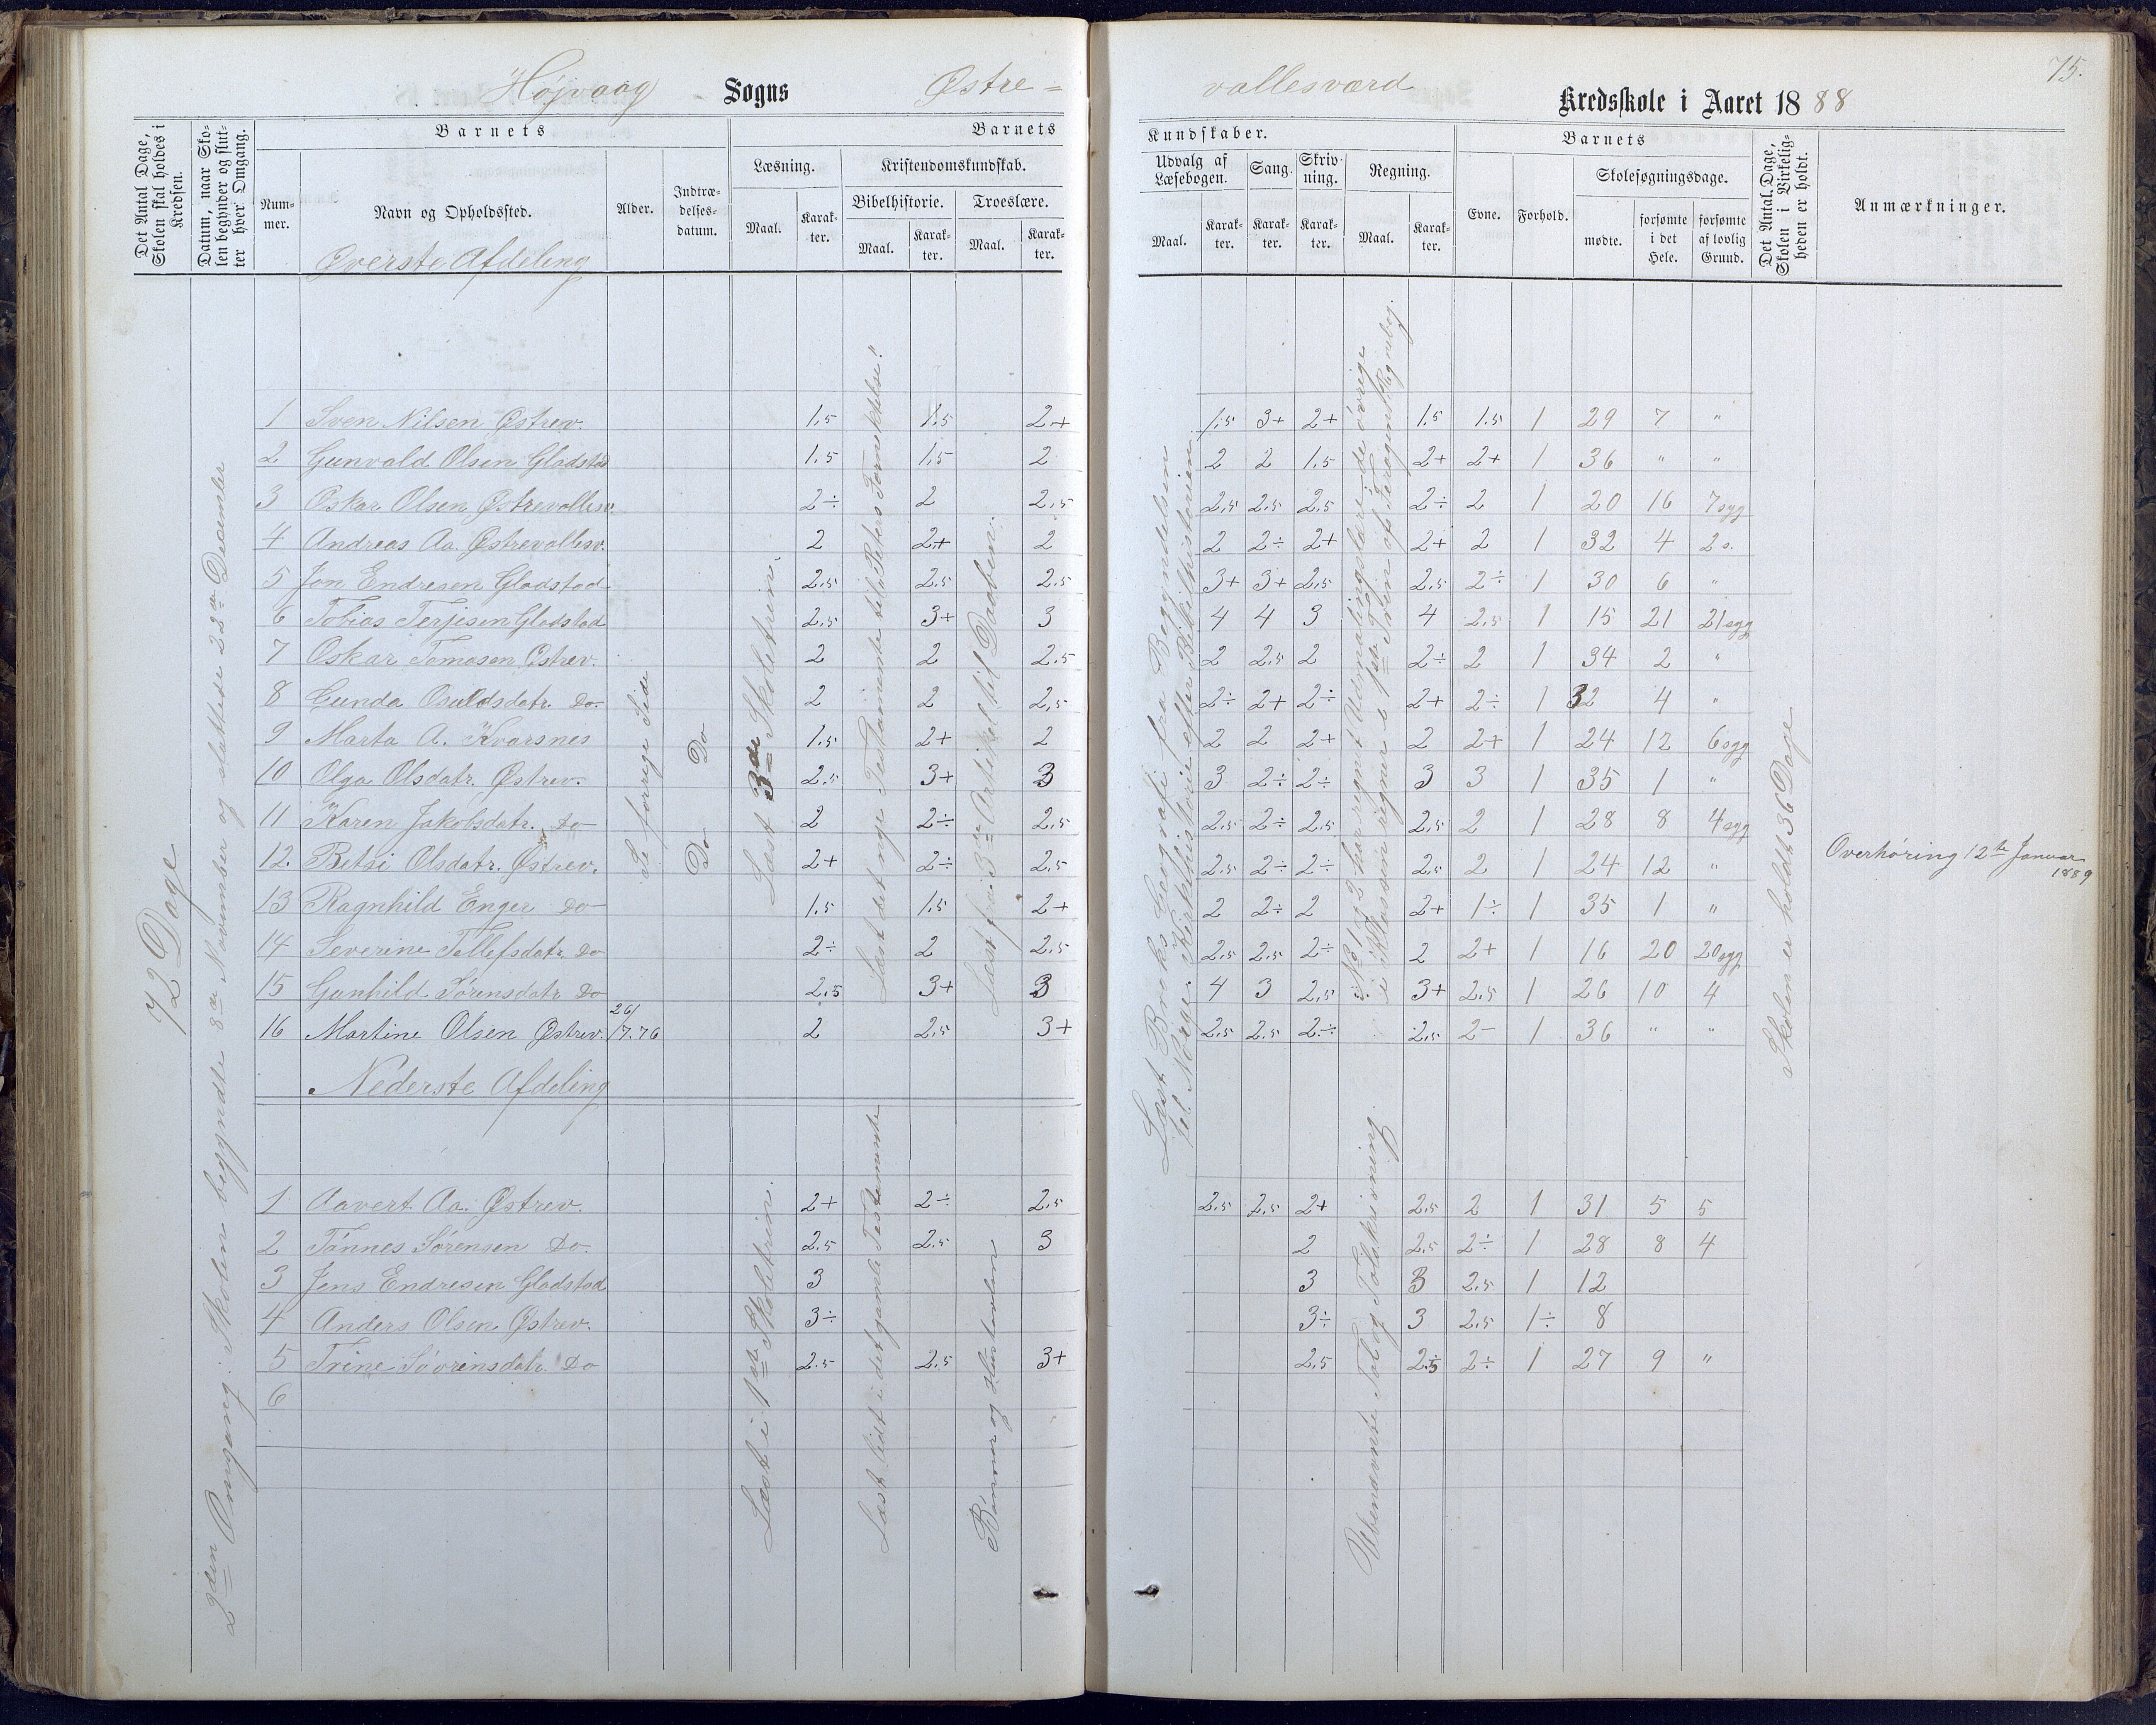 Højvaag Sogns Østre=
vallesværd Kredsskole i Aaret 1888
75.
Det Antal Dage, Skolen skal holdes i Kredsen.
Datum, naar Skolen begynder og slutter hver Omgang.
Barnets
Nummer.
Navn og Opholdssted.
Alder.
Indtrædelsesdatum.
Barnets
Læsning.
Kristendomskundskab.
Bibelhistorie.
Troeslære.
Maal. Karakter. Maal. Karakter. Maal. Karakter.
Kundskaber.
Udvalg af Læsebogen.
Sang.
Skrivning.
Regning.
Maal. Karakter. Karakter. Karakter. Maal. Karakter.
Barnets
Evne. Forhold.
Skolesøgningsdage.
mødte.
forsømte i det Hele.
forsømte af lovlig Grund.
Det Antal Dage, Skolen i Virkeligheden er holdt.
Anmærkninger.
Øverste Afdeling
72 Dage
2den Omgang. Skolen begyndte 8de November og sluttede 22de Desember
Se forrige Side
Do Do
Læst 3de Skoletrin.
Læst det nye Testamente til "Peters Fornektelse".
Læst fra 3die Artikel til Daaben.
Læst Broks Geografi fra Begyndelsen
til Norge. Kirkehistorie efter Bibelhistorien.
No 1 og 2 har regnet Udmaalingslære, de øvrige
i Klassen regner i 1ste Trin af Feragens Regnebog.
Skolen er holdt 36 Dage
1 Sven Nilsen Østrev. 1.5 1.5 2+ 1.5 3+ 2+ 1.5 1.5 1 29 7 "
2 Gunvald Olsen Gladstad 1.5 1.5 2 2 2 1.5 2+ 2+ 1 36 " "
3 Oskar Olsen Østrevallesv. 2÷ 2 2.5 2.5 2.5 2.5 2÷ 2 1 20 16 7 syg
4 Andreas Aa. Østrevallesv. 2 2+ 2 2 2÷ 2+ 2+ 2 1 32 4 2 s.
5 Jon Endresen Gladstad 2.5 2.5 2.5 3+ 3+ 2.5 2.5 2÷ 1 30 6 "
6 Tobias Terjesen Gladstad 2.5 3+ 3 4 4 3 4 2.5 1 15 21 21 syg
7 Oskar Tomasen Østrev. 2 2 2.5 2 2.5 2 2÷ 2 1 34 2 "
8 Gunda Osuldsdatr. Do. 2 2 2.5 2÷ 2+ 2÷ 2+ 2÷ 1 32 4 "
9 Marta A. Kvarsnes 1.5 2+ 2 2 2 2+ 2 2+ 1 24 12 6 syg
10 Olga Olsdatr. Østrev. 2.5 3+ 3 3 2÷ 2÷ 3 3 1 35 1 "
11 Karen Jakobsdatr. Do 2 2÷ 2.5 2.5 2÷ 2.5 2.5 2 1 28 8 4 syg
12. Betsi Olsdatr. Østrev. 2+ 2÷ 2.5 2.5 2÷ 2÷ 2.5 2 1 24 12 " Overhøring 12te Januar 1889
13 Ragnhild Enger Do 1.5 1.5 2+ 2 2÷ 2 2+ 1÷ 1 35 1 "
14 Severine Tellefsdatr. Do 2÷ 2 2.5 2.5 2.5 2÷ 2 2+ 1 16 20 20 syg
15 Gunhild Sørensdatr Do 2.5 3+ 3 4 3 2.5 3+ 2.5 1 26 10 4
16 Martine Olsen Østrev. 26/7.76 2 2.5 3+ 2.5 2.5 2÷ 2.5 2- 1 36 " "
Nederste Afdeling
Læst i 1ste Skoletrin.
Læst lidt i det gamle Testamente
Bønner og Husstavlen
Ubenævnte Tal og Talskrivning.
1 Aavert Aa. Østrev. 2+ 2÷ 2.5 2.5 2.5 2+ 2.5 2 1 31 5 5
2 Tønnes Sørensen Do. 2.5 2.5 3 2 2.5 2÷ 1 28 8 4
3 Jens Endresen Gladstad 3 3 3 2.5 1 12
4 Anders Olsen Østrev. 3÷ 3÷ 3 2.5 1÷ 8
5 Trine Sørensdatr. Do 2.5 2.5 3+ 2.5 2.5 2÷ 1 27 9 "
6